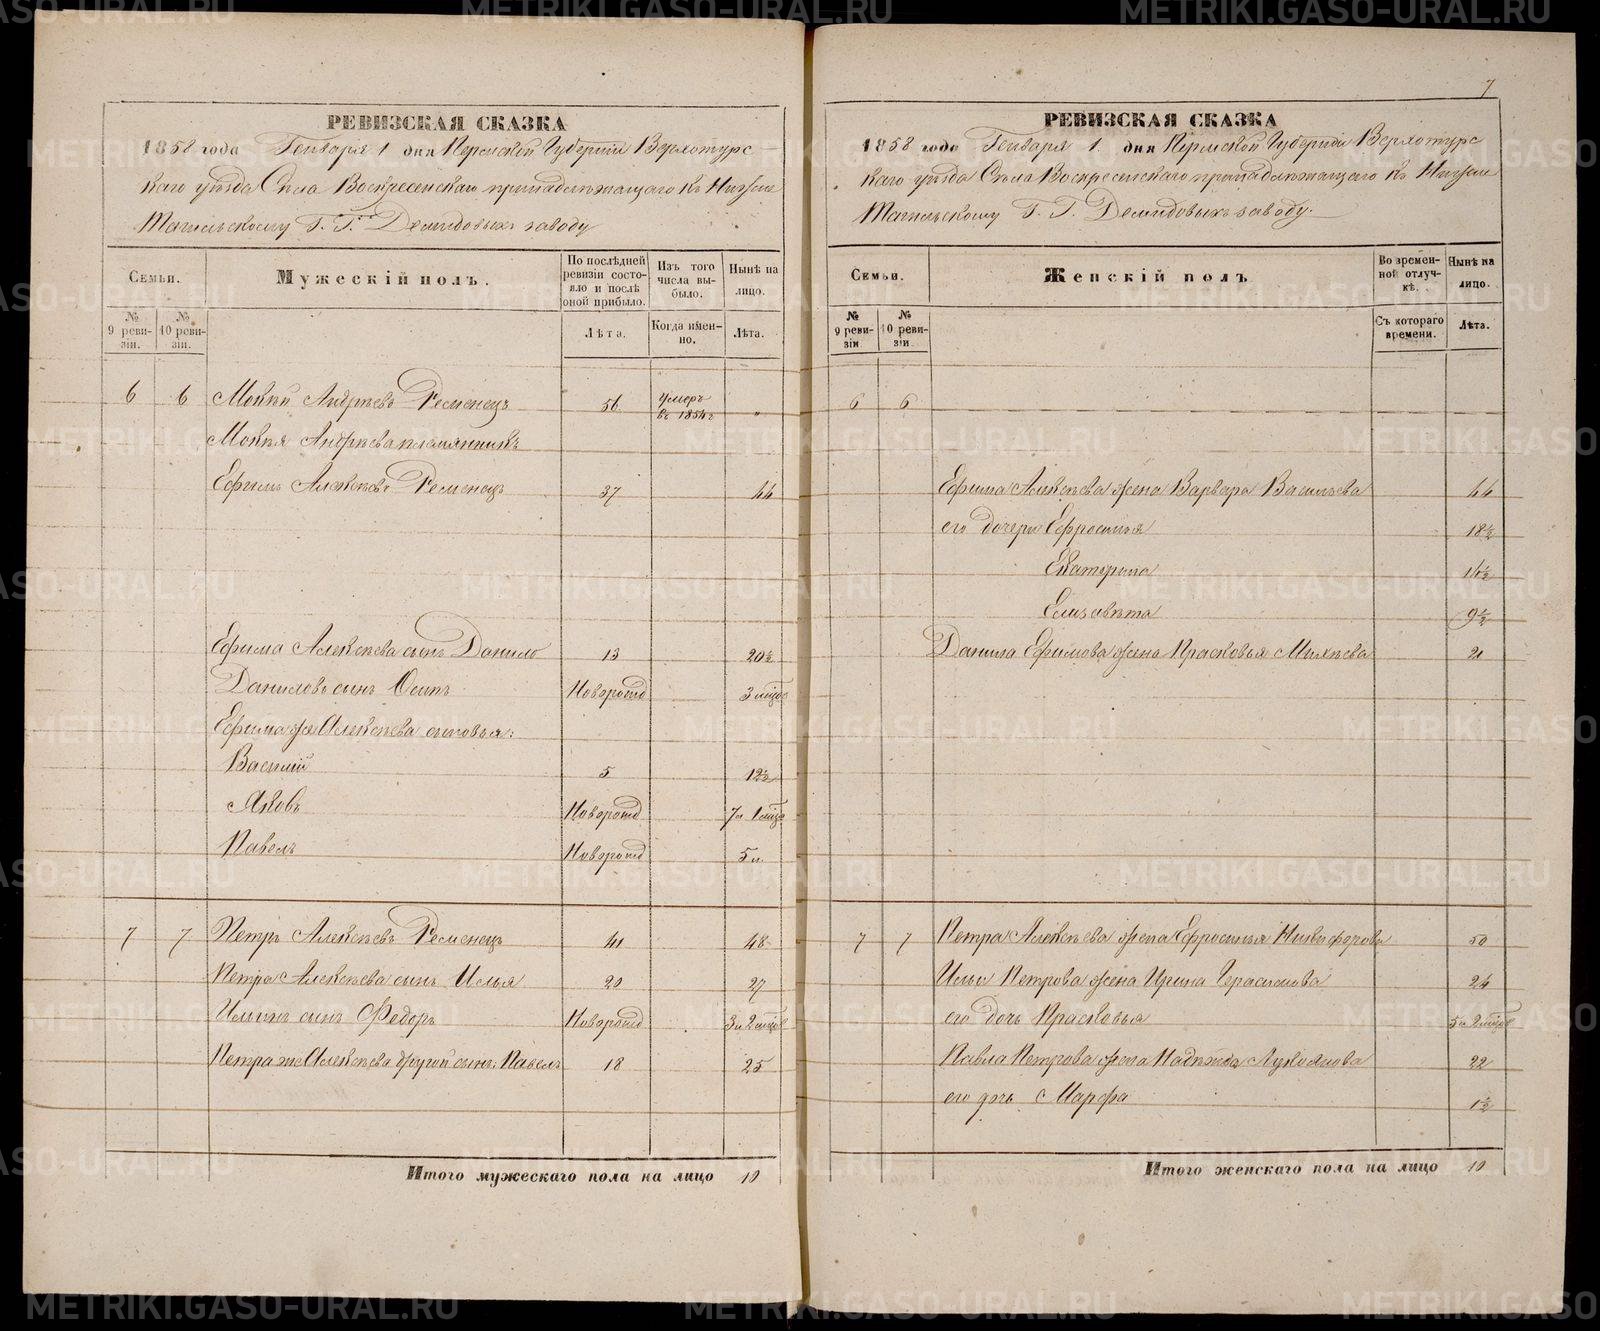 РЕВИЗСКАЯ СКАЗКА
1858 года Генваря 1 дня Пермской Губернии Верхотурс-
каго уѣзда Села Воскресенскаго принадлежащаго къ Нижне
Тагильскому Г. Г. Демидовыхъ заводу
Семьи.
Мужескій полъ.
По послѣдней ревизіи состояло и послѣ оной прибыло.
Изъ того числа выбыло.
Нынѣ на лицо.
№ 9 ревизіи.
№ 10 ревизіи.
Лѣта.
Когда именно.
Лѣта.
6 6 Мокѣй Андреевъ Ременецъ 56 умеръ въ 1854 г "
Мокѣя Андреева племянникъ
Ефимъ Алексѣевъ Ременецъ 37 44
Ефима Алексѣева сынъ Данило 13 20½
Даниловъ сынъ Осипъ Новорожд 3 мцов
Ефима же Алексѣева сыновья:
Василий 5 12½
Яковъ Новорожд 7 л 1 мцъ
Павелъ Новорожд 5 л.
7 7 Петръ Алексѣевъ Ременецъ 41 48
Петра Алексѣева сынъ Илья 20 27
Ильинъ сынъ Федоръ Новорожд 3 л 2 мцов
Петра же Алексѣева другой сынъ Павелъ 18 25
Итого мужескаго пола на лицо 10
7
РЕВИЗСКАЯ СКАЗКА
1858 года Генваря 1 дня Пермской Губерніи Верхотурс
каго уѣзда Села Воскресенскаго принадлежащаго къ Нижне
Тагильскому Г. Г. Демидовыхъ заводу.
Семьи.
Женскій полъ
Во временной отлучкѣ.
Нынѣ на лицо.
№ 9 ревизіи
№ 10 ревизіи
Съ котораго времени.
Лѣта.
6 6
Ефима Алексѣева жена Варвара Васильева 44
его дочери Ефросинья 18½
Екатерина 16½
Елизавѣта 9½
Данила Ефимова жена Прасковья Михѣева 21
7 7 Петра Алексѣева жена Ефросинья Никифорова 50
Ильи Петрова жена Ирина Герасимова 24
его дочь Прасковья 5 л 2 мцов
Павла Петрова жена Надѣжда Лукоянова 22
его дочь Марфа 1½
Итого женскаго пола на лицо 10
METRIKI.GASO-URAL.RU